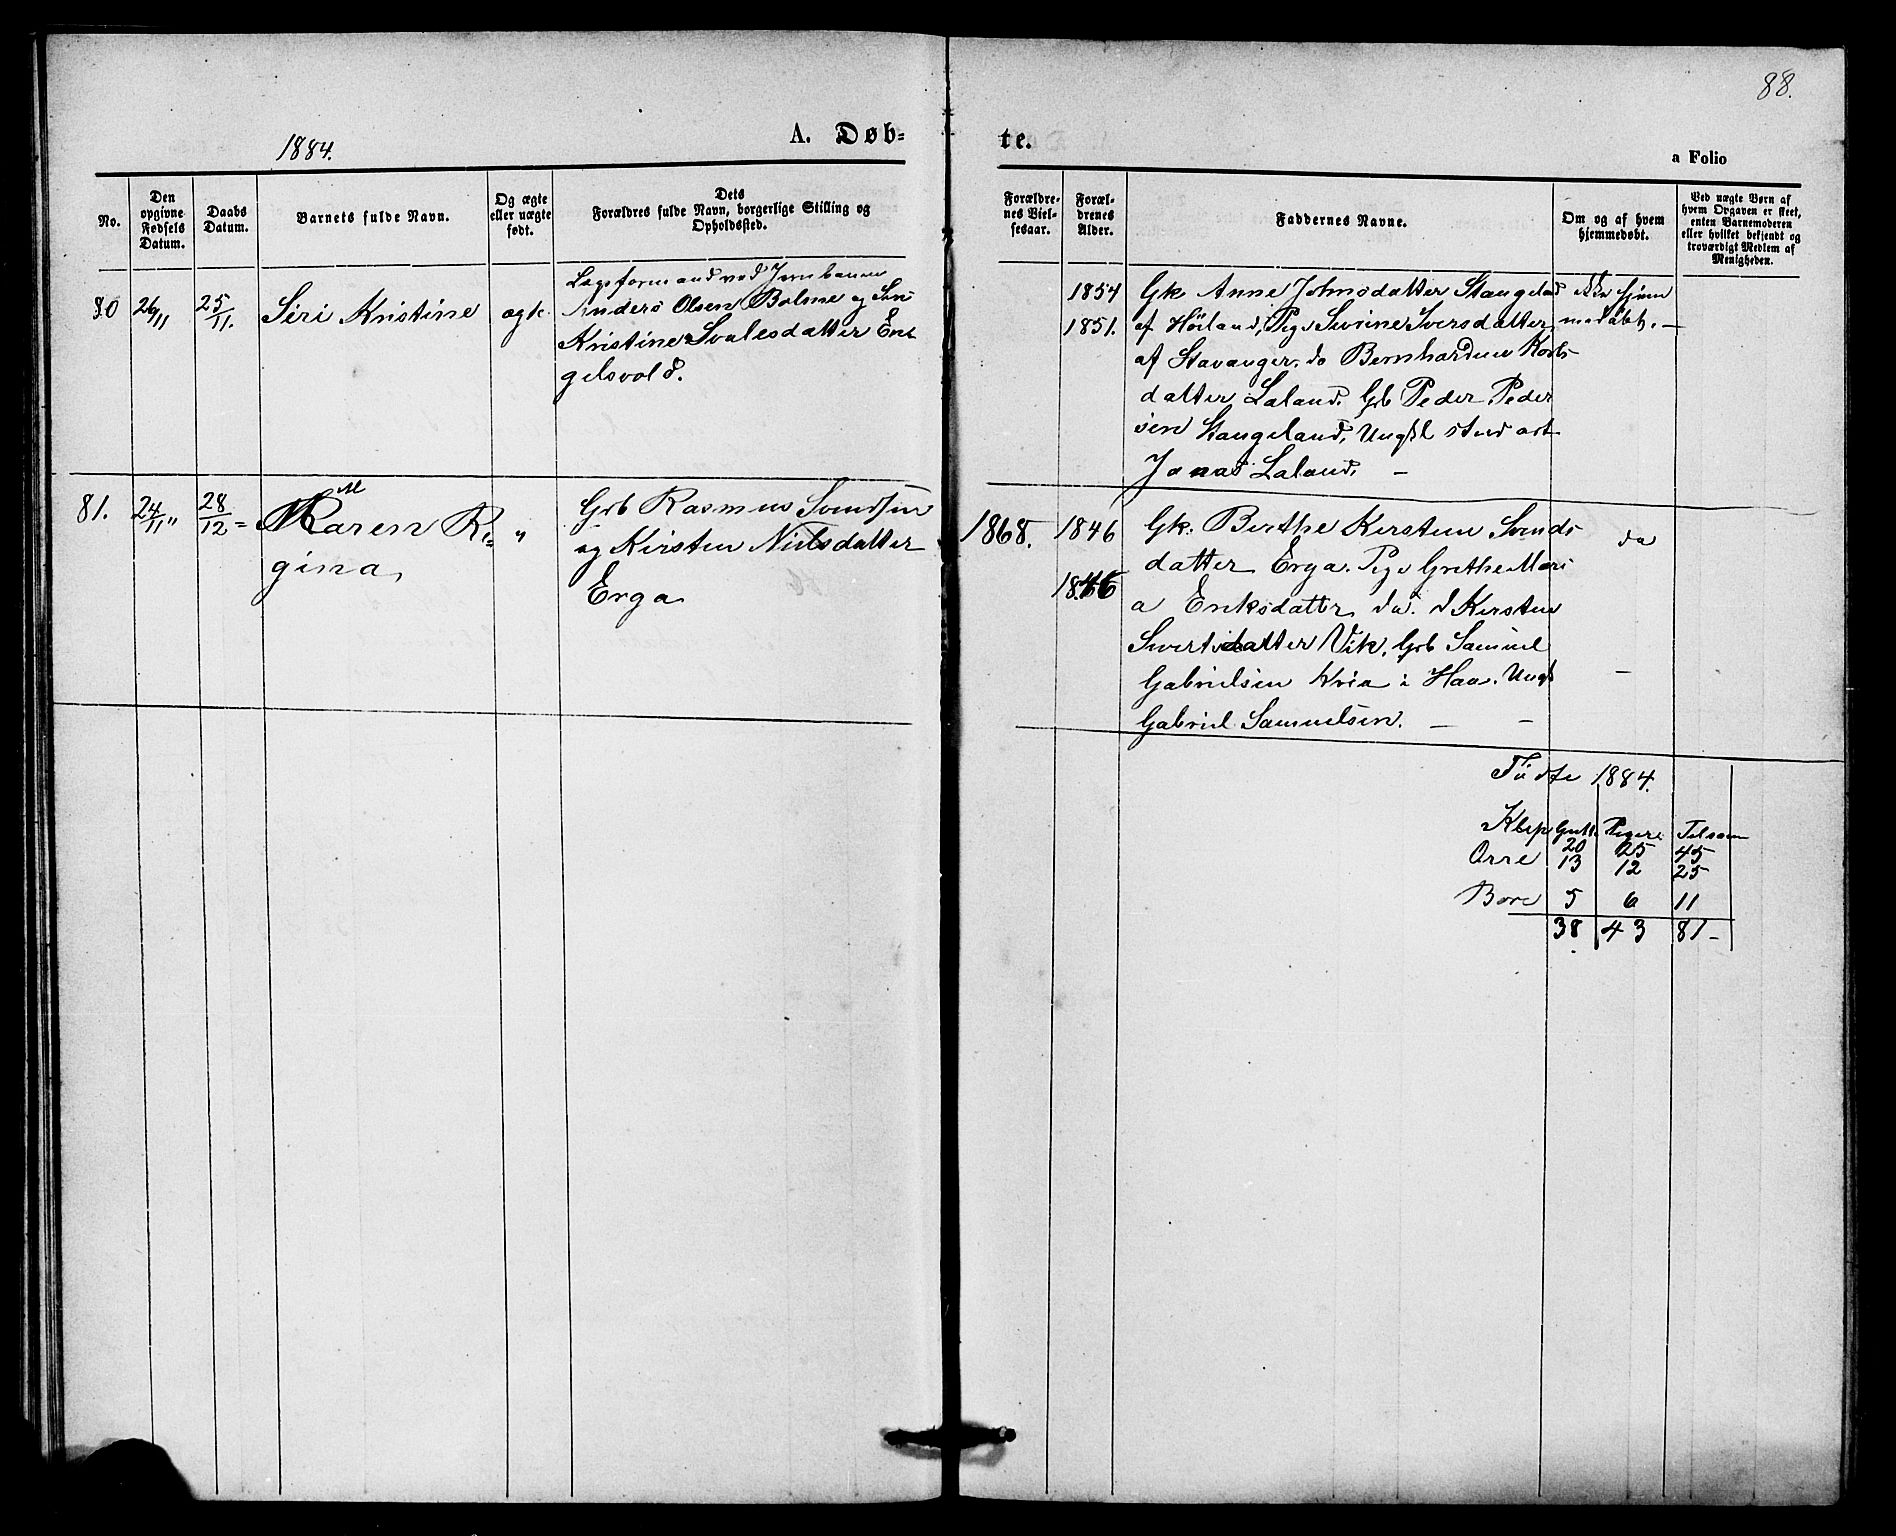 88.
1884.
A. Døb-
te.
a Folio
No.
Den
opgivne
Fødsels
Datum.
Daabs
Datum.
Barnets fulde Navn.
Og ægte
eller uægte
født.
Dets
Forældres fulde Navn, borgerlige Stilling og
Opholdssted.
Forældre-
nes Viel-
sesaar.
Foræl-
drenes
Alder.
Faddernes Navne.
Om og af hvem
hjemmedøbt.
Ved uægte Børn af
hvem Opgaven er skeet,
enten Barnemoderen
eller hvilket bekjendt og
troværdigt Medlem af
Menigheden.
80
26/11
25/11.
Siri Kristine
ægte
Lagsformand ved Jernbanen
Anders Olsen Bolme og Siri
Kristine Svalesdatter En
gelsvold.
1854
1851.
Gk Anne Johnsdatter Stangeland
af Höiland, Pige Iversdatter
af Stavanger, do Bernhardine
datter Laland. Gb Peder Peder
sen Stangeland, Ungkl stud art
Jonas Laland. —
ikke hjem
medöbt. —
81.
24/11 "
28/12 =
Maren Re=
gina
"
Grb Rasmus Svendsen
og Kirsten Nielsdatter
Erga
1868.
1846
1846
Gk. Berthe Kirsten Svends
datter Erga. Pige Grethe Mari
a Eriksdatter do. d Kirsten
Sivertsdatter Vik, Grb Samuel
Gabrielsen Kvia i Haa. Ungk
Gabriel Samuelsen. — —
do
—
Födte 1884.
Klep Gutte Piger Tilsam
20 25 45
Orre 13 12 25
Bore 5 6 11
38 43 81 -